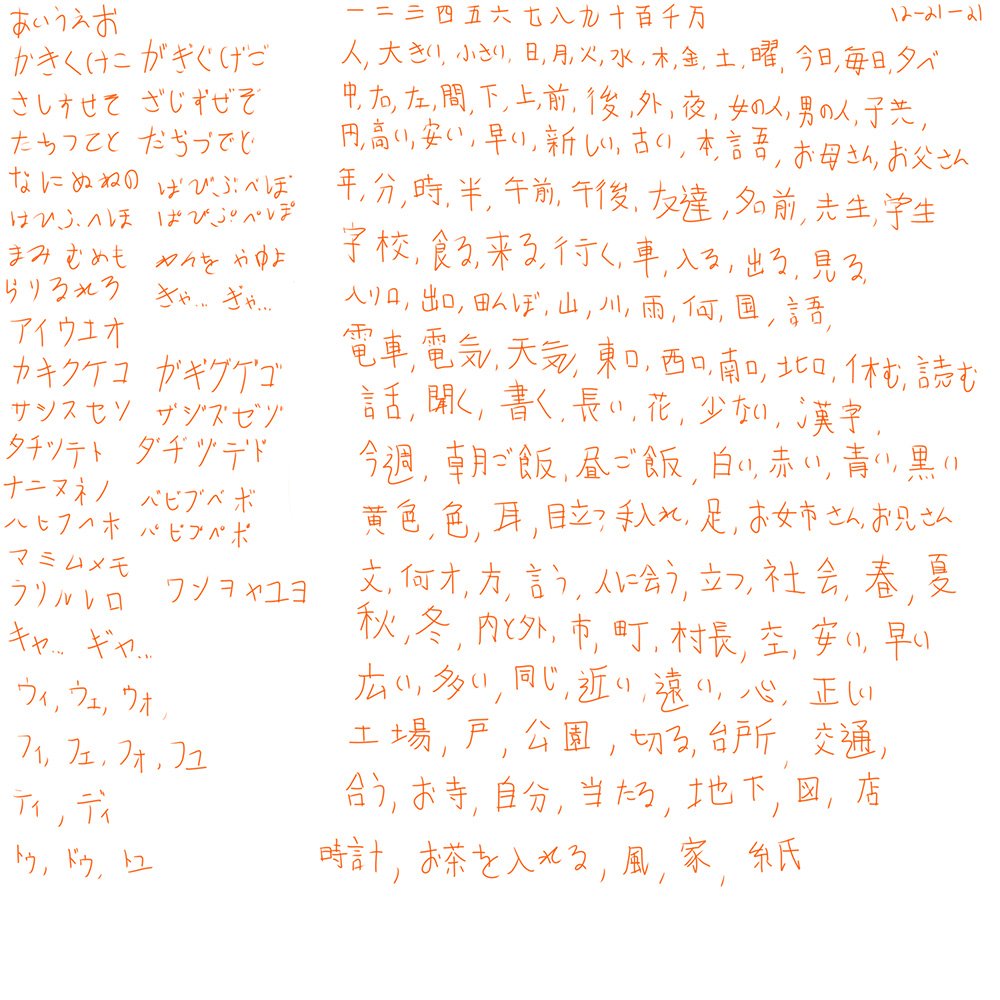 あいうえお
かきくけこ がぎぐげご
さしすせそ ざじずぜぞ
たちつてと だぢづでど
なにぬねの ばびぶべぼ
はひふへほ ぱぴぷぺぽ
まみむめも わんを やゆよ
らりるれろ きゃ... ぎゃ...
アイウエオ
カキクケコ ガギグゲゴ
サシスセソ ザジズゼゾ
タチツテト ダヂヅデド
ナニヌネノ バビブベボ
ハヒフヘホ パピプペポ
マミムメモ
ラリルレロ ワンヲヤユヨ
キャ... ギャ...
ウィ, ウェ, ウォ,
フィ, フェ, フォ, フュ
ティ, ディ
トゥ, ドゥ, トュ
一二三四五六七八九十百千万 12-21-21
人, 大きい, 小さい, 日, 月, 火, 水, 木, 金, 土, 曜, 今日, 毎日, 夕べ
中, 右, 左, 間, 下, 上, 前, 後, 外, 夜, 女の人, 男の人, 子共,
円, 高い, 安い, 早い, 新しい, 古い, 本, 語, お母さん, お父さん
年, 分, 時, 半, 午前, 午後, 友達, 名前, 先生, 学生
字校, 食る, 来る, 行く, 車, 入る, 出る, 見る,
入り口, 出口, 田んぼ, 山, 川, 雨, 何, 国, 語,
電車, 電気, 天気, 東口, 西口, 南口, 北口, 休む, 読む
話, 聞く, 書く, 長い, 花, 少ない, 漢字,
今週, 朝ご飯, 昼ご飯, 白い, 赤い, 青い, 黒い
黄色, 色, 耳, 目立つ, 手入れ, 足, お姉さん, お兄さん
文, 何才, 方, 言う, 人に会う, 立つ, 社会, 春, 夏
秋, 冬, 内と外, 市, 町, 村長, 空, 安い, 早い
広い, 多い, 同じ, 近い, 遠い, 心, 正しい
土場, 戸, 公園, 切る, 台所, 交通,
合う, お寺, 自分, 当たる, 地下, 図, 店
時計, お茶を入れる, 風, 家, 紙